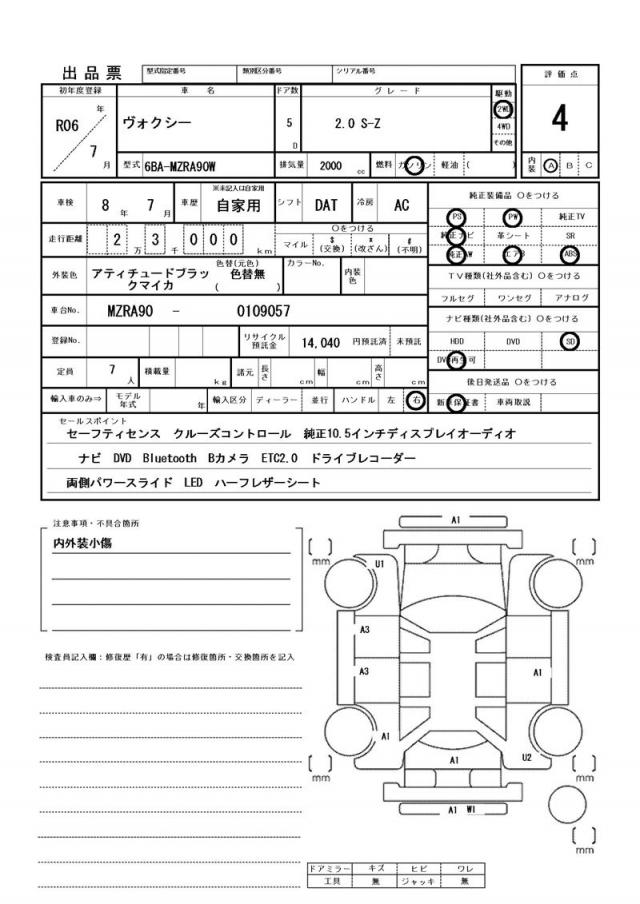 出品票
型式指定番号 類別区分番号 シリアル番号
評価点
初年度登録 車名 ドア数 グレード 駆動
R06年 / 7月 ヴォクシー 5D 2.0 S-Z 2WD 4WD その他 4
型式 6BA-MZRA90W 排気量 2000 cc 燃料 ガソリン 軽油 ( ) 内装 A B C
車検 8年 7月 車歴 ※未記入は自家用 自家用 シフト DAT 冷房 AC
純正装備品 ○をつける
PS PW 純正TV
走行距離 2万 3千 0 0 0 km ○をつける マイル $(交換) *(改ざん) #(不明)
純正ナビ 革シート SR
純正AW エアB ABS
外装色 アティチュードブラックマイカ 色替(元色) 色替無 ( ) カラーNo. 内装色
TV種類(社外品含む) ○をつける
フルセグ ワンセグ アナログ
車台No. MZRA90 - 0109057
ナビ種類(社外品含む) ○をつける
登録No. リサイクル預託金 14,040 円預託済 未預託
HDD DVD SD
DVD再生可
定員 7人 積載量 kg 諸元 長さ cm 幅 cm 高さ cm
後日発送品 ○をつける
輸入車のみ⇒ モデル年式 年 輸入区分 ディーラー 並行 ハンドル 左 右
新車保証書 車両取説
セールスポイント
セーフティセンス クルーズコントロール 純正10.5インチディスプレイオーディオ
ナビ DVD Bluetooth Bカメラ ETC2.0 ドライブレコーダー
両側パワースライド LED ハーフレザーシート
注意事項・不具合箇所
内外装小傷
検査員記入欄:修復歴「有」の場合は修復箇所・交換箇所を記入
A1
[ ] mm [ ] mm
U1
A3
A3 A1
A1 U2
A1
[ ] mm [ ] mm
A1 W1
[ ] mm
ドアミラー キズ ヒビ ワレ
工具 無 ジャッキ 無